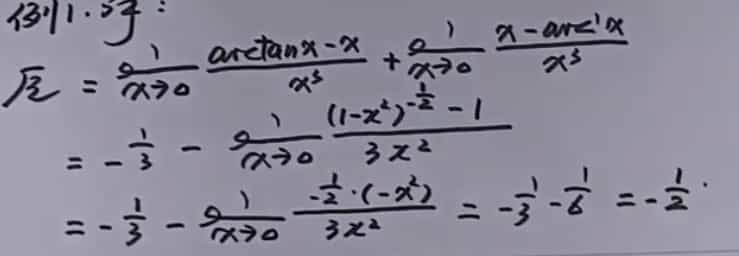 例1.解:
原 = lim x→0 (arctanx-x)/x³ + lim x→0 (x-arc x)/x³
= -1/3 - lim x→0 ((1-x²)^(-1/2) - 1)/(3x²)
= -1/3 - lim x→0 (-1/2·(-x²))/(3x²) = -1/3 - 1/6 = -1/2.